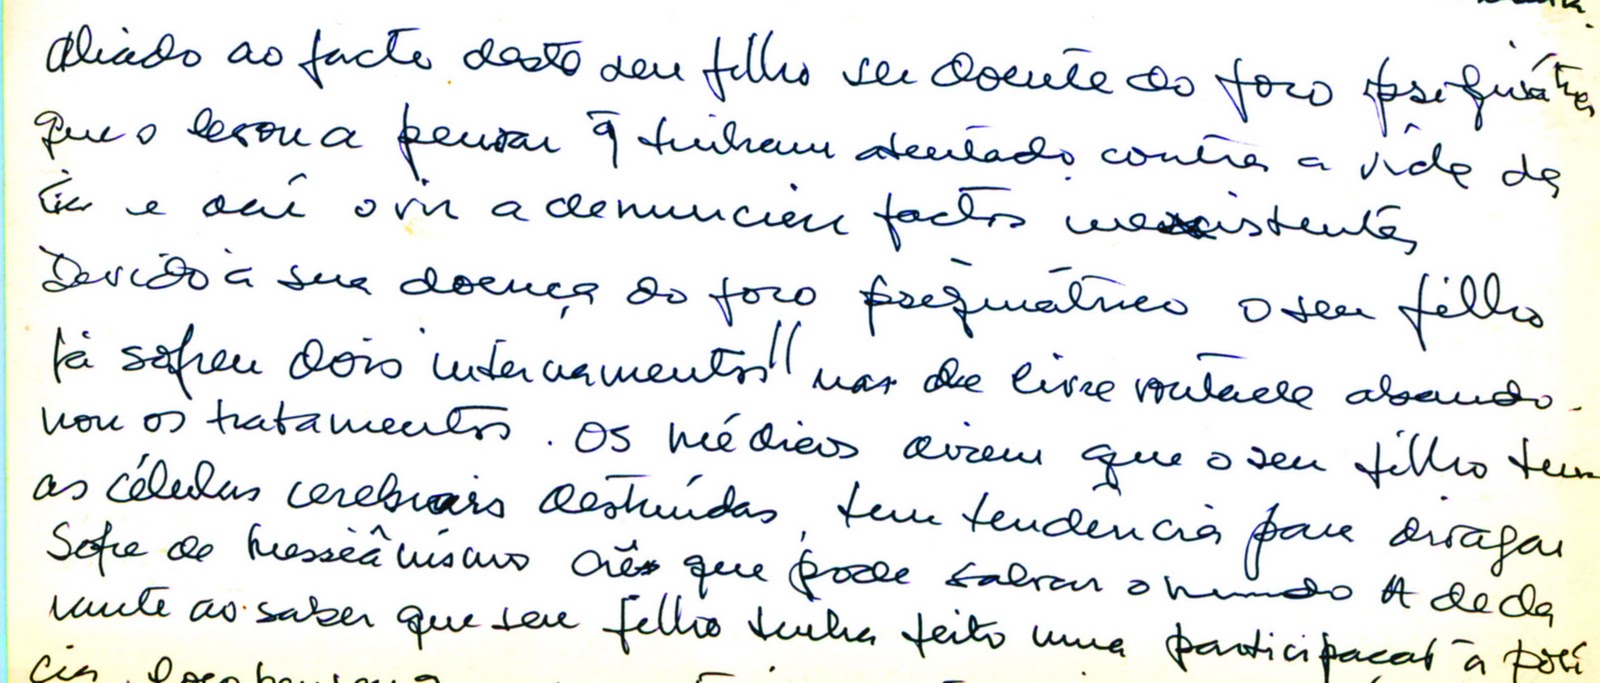 aliado ao facto deste seu filho ser doente do foro psiquiátrico
que o levou a pensar q̃ tinham atentado contra a vida da
tia e daí o vir a denunciar factos inexistentes
Devido à sua doença do foro psiquiátrico o seu filho
já sofreu dois internamentos mas de livre vontade abando-
nou os tratamentos. Os médicos dizem que o seu filho tem
as células cerebrais destruídas, tem tendência para divagar
Sofre de messiânismo crê que pode salvar o mundo A decla
rante ao saber que seu filho tinha feito uma participação à polí
cia,